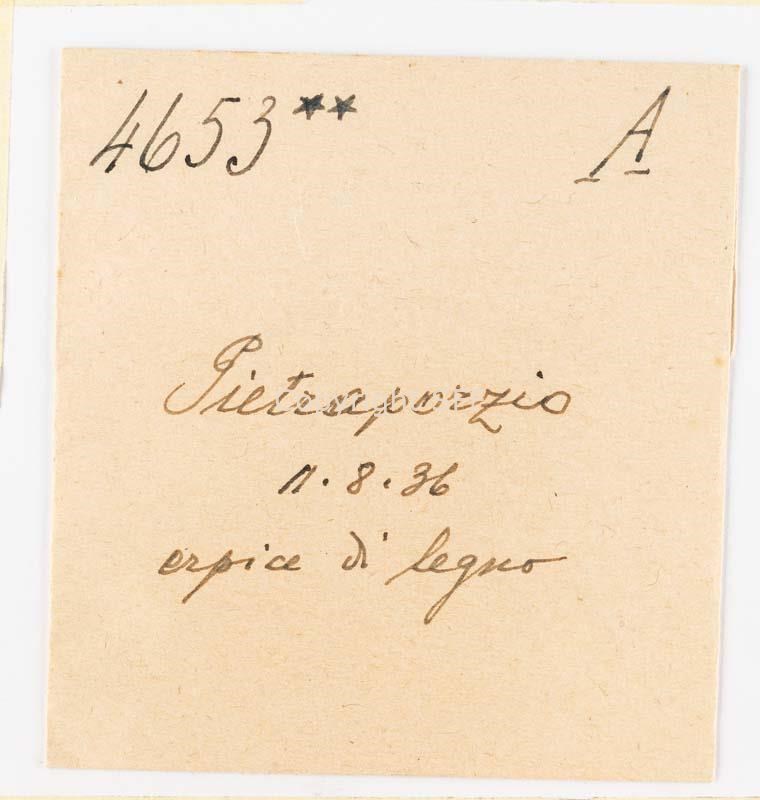 4653** A
Pietraporzio
11.8.36
erpice di legno